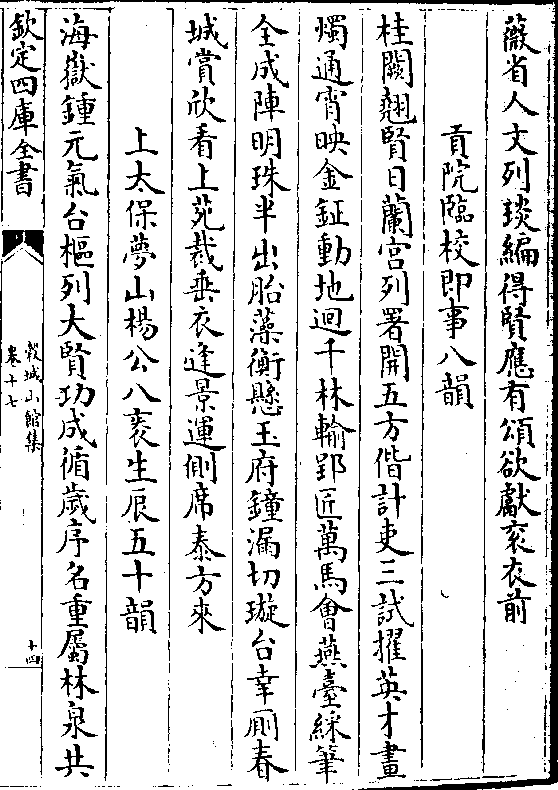 薇省人文列琰編得賢應有頌欲獻衮衣前
貢院臨校即事八韻
桂闕翹賢日蘭宫列署開五方偕計吏三試擢英才畫
燭通宵映金鉦動地迴千林輸郢匠萬馬會燕臺綵筆
全成陣明珠半出胎藻衡懸玉府鐘漏切璇台幸厠春
城賞欣看上苑裁垂衣逢景運側席泰方來
上太保夢山楊公八袠生辰五十韻
海嶽鍾元氣台樞列大賢功成循歲序名重屬林泉共
欽定四庫全書
穀城山館集
卷十七
十四